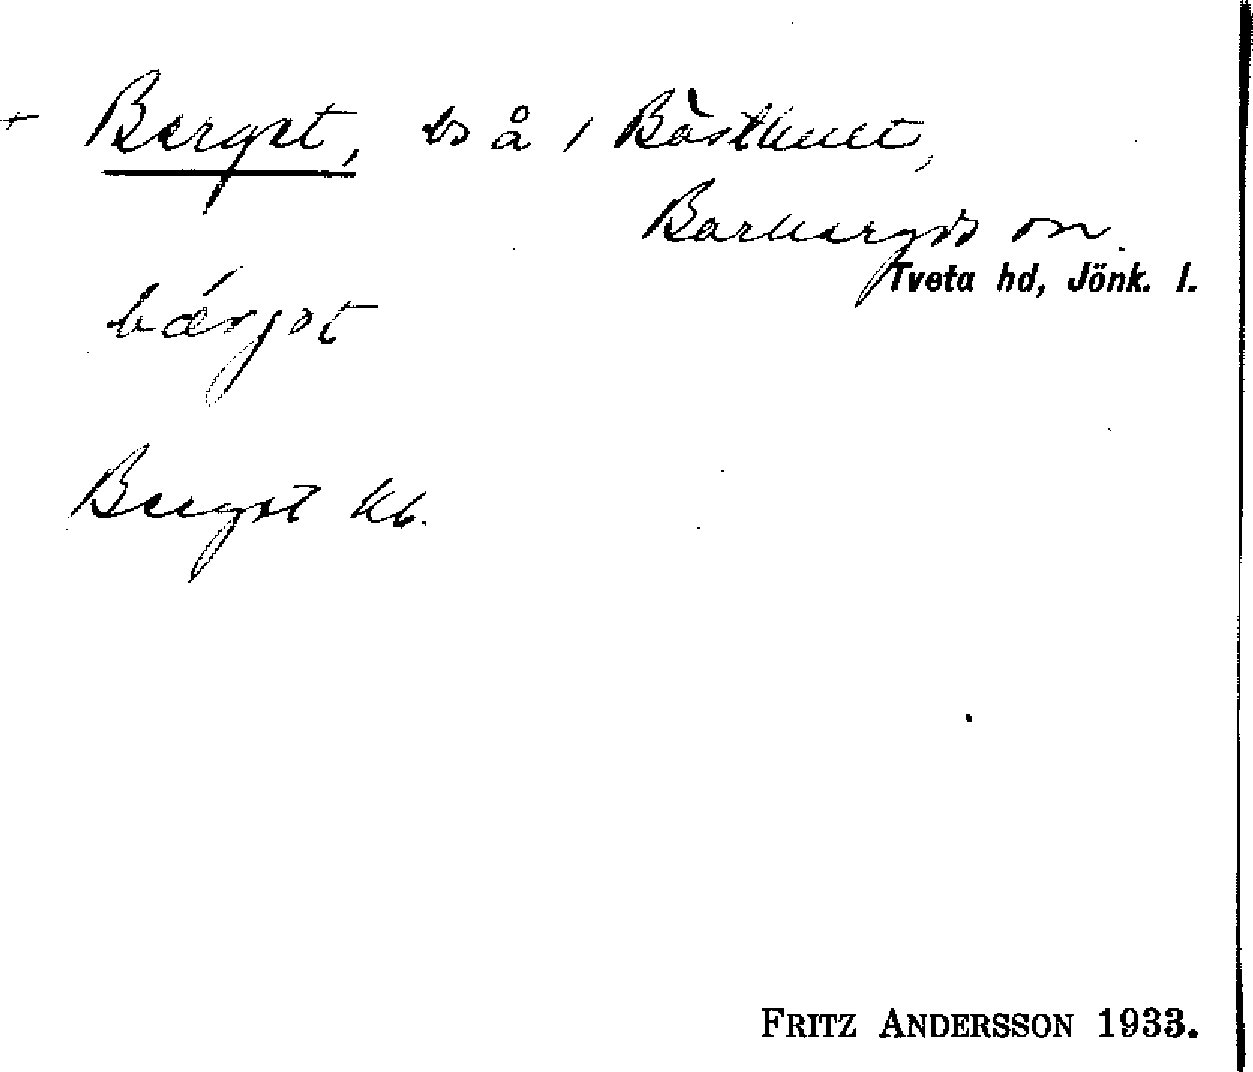 + Berget, ts å i Bösthult,
Barkeryds sn.
Tveta hd, Jönk. l.
bǽrgət
Berget kb.
FRITZ ANDERSSON 1933.